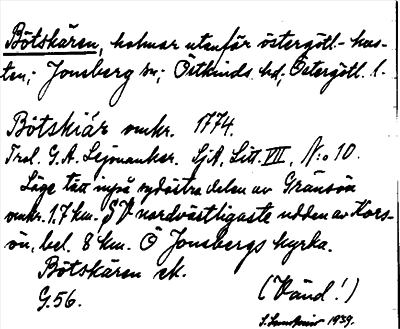 Bötskären, holmar utanför östergötl.-kus-
ten; Jonsberg sn; Östkinds hd, Östergötl. l.
Bötskiär omkr. 1774.
Trol. G. A. Lejonanker. SjA, Litt. VII, N:o 10.
Läge tätt inpå sydöstra delen av Gränsön
omkr. 1.7 km. SV nordvästligaste udden av Kors-
ön, bel. 8 km. Ö Jonsbergs kyrka.
Bötskären ek.
G.56. (Vänd!)
S. 1939.